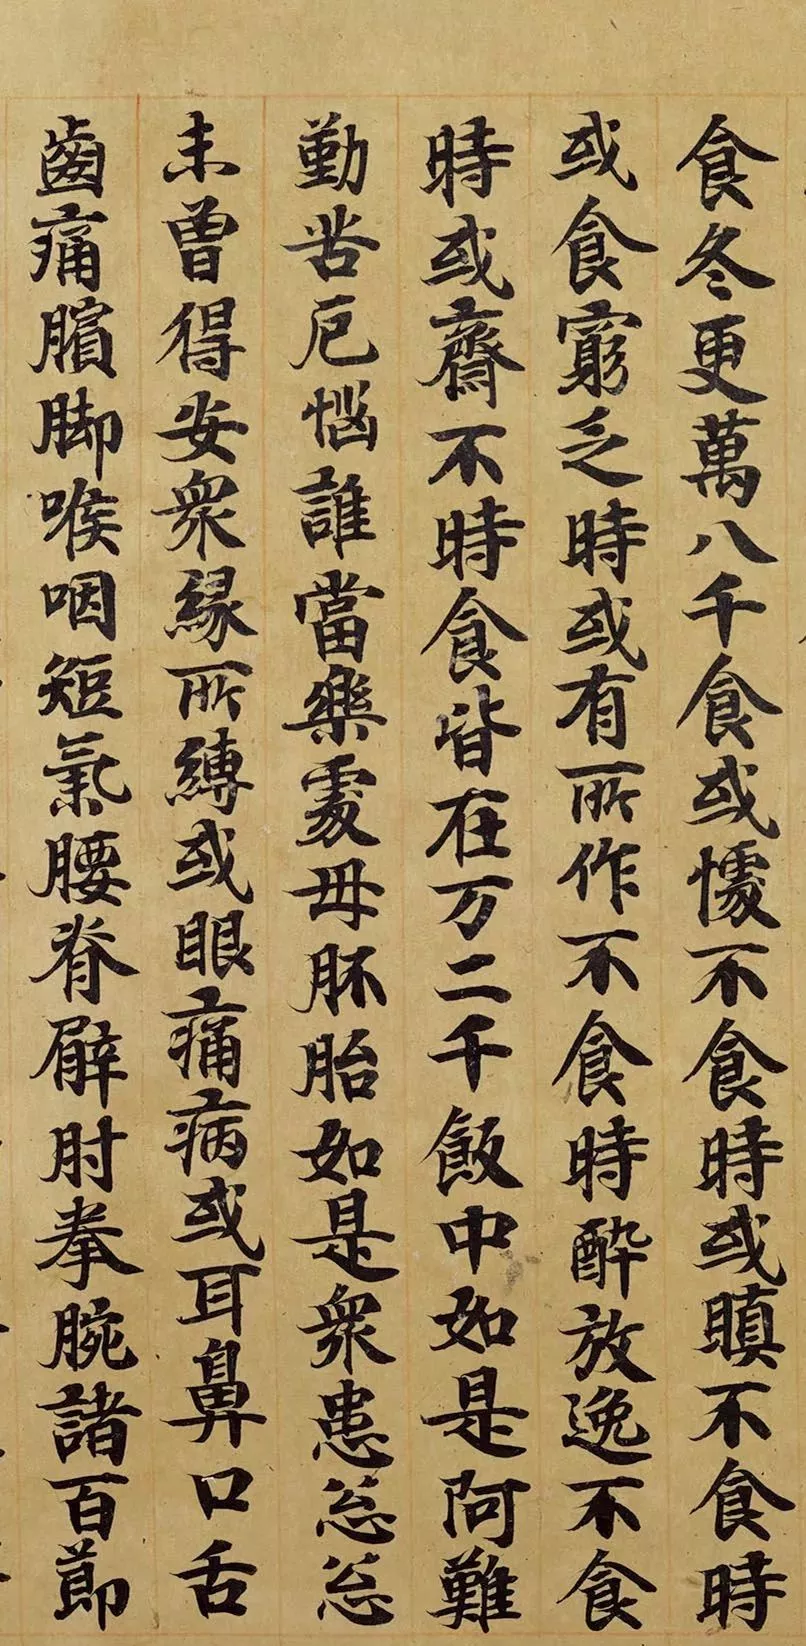 食冬更萬八千食或懅不食時或瞋不食時
或食窮乏時或有所作不食時醉放逸不食
時或齋不時食皆在万二千飯中如是阿難
勤苦厄惱誰當樂處母胚胎如是眾患忩忩
未曾得安眾緣所縛或眼痛病或耳鼻口舌
齒痛臏脚喉咽短氣腰脊臂肘拳腕諸百節